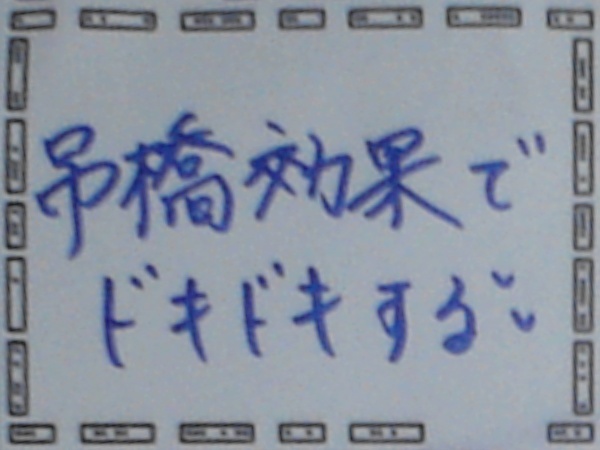 吊橋効果で
ドキドキする